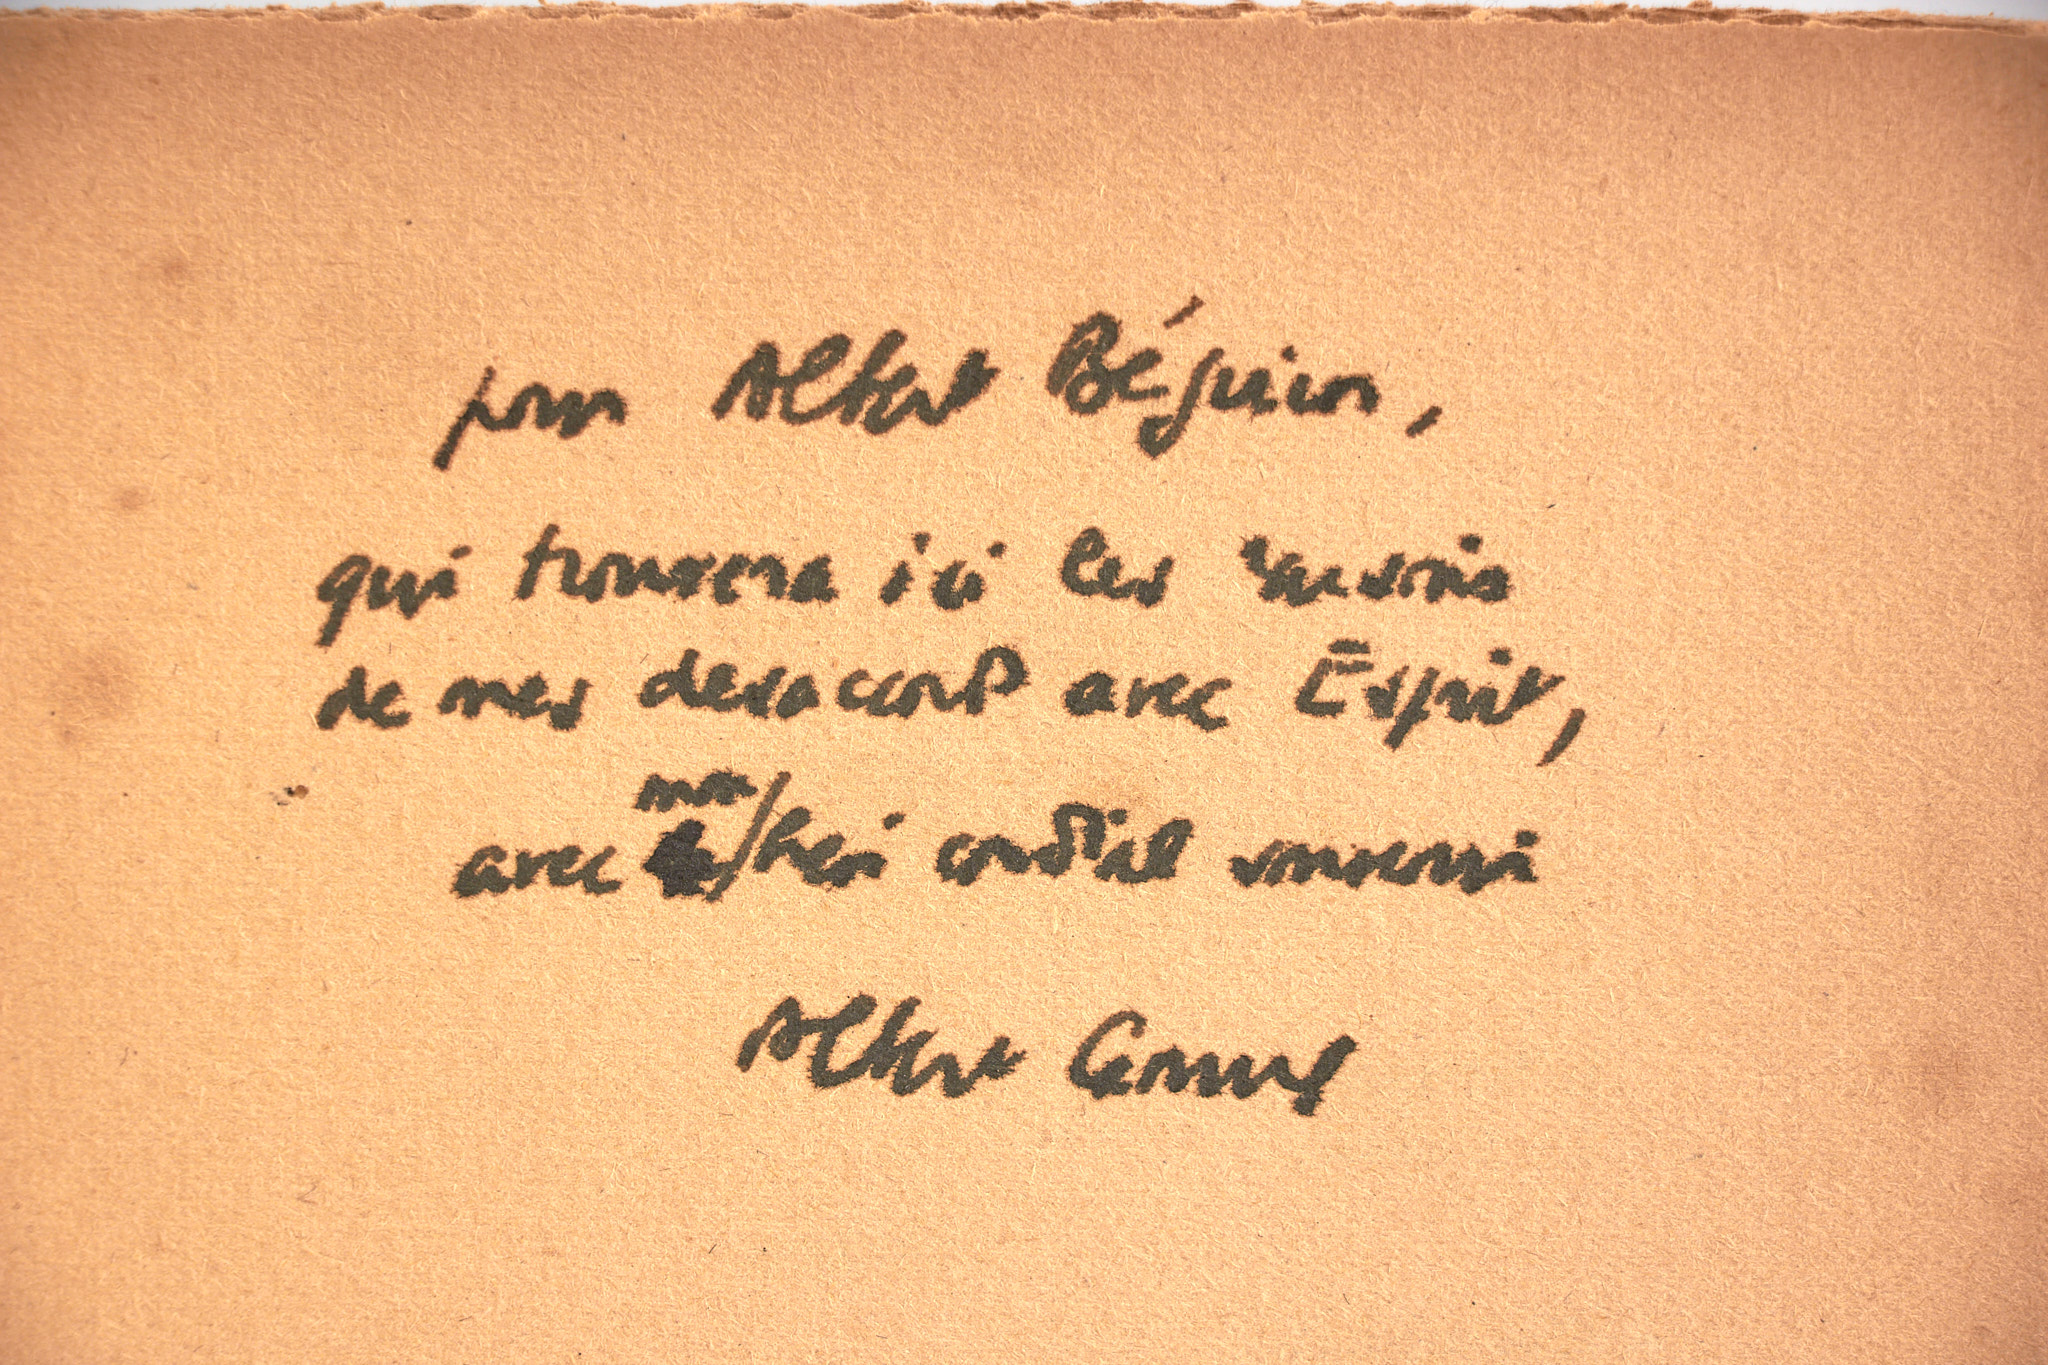 pour Albert Béguin,
qui trouvera ici les raisons
de mes desaccords avec Esprit,
avec mon très cordial souvenir
Albert Camus